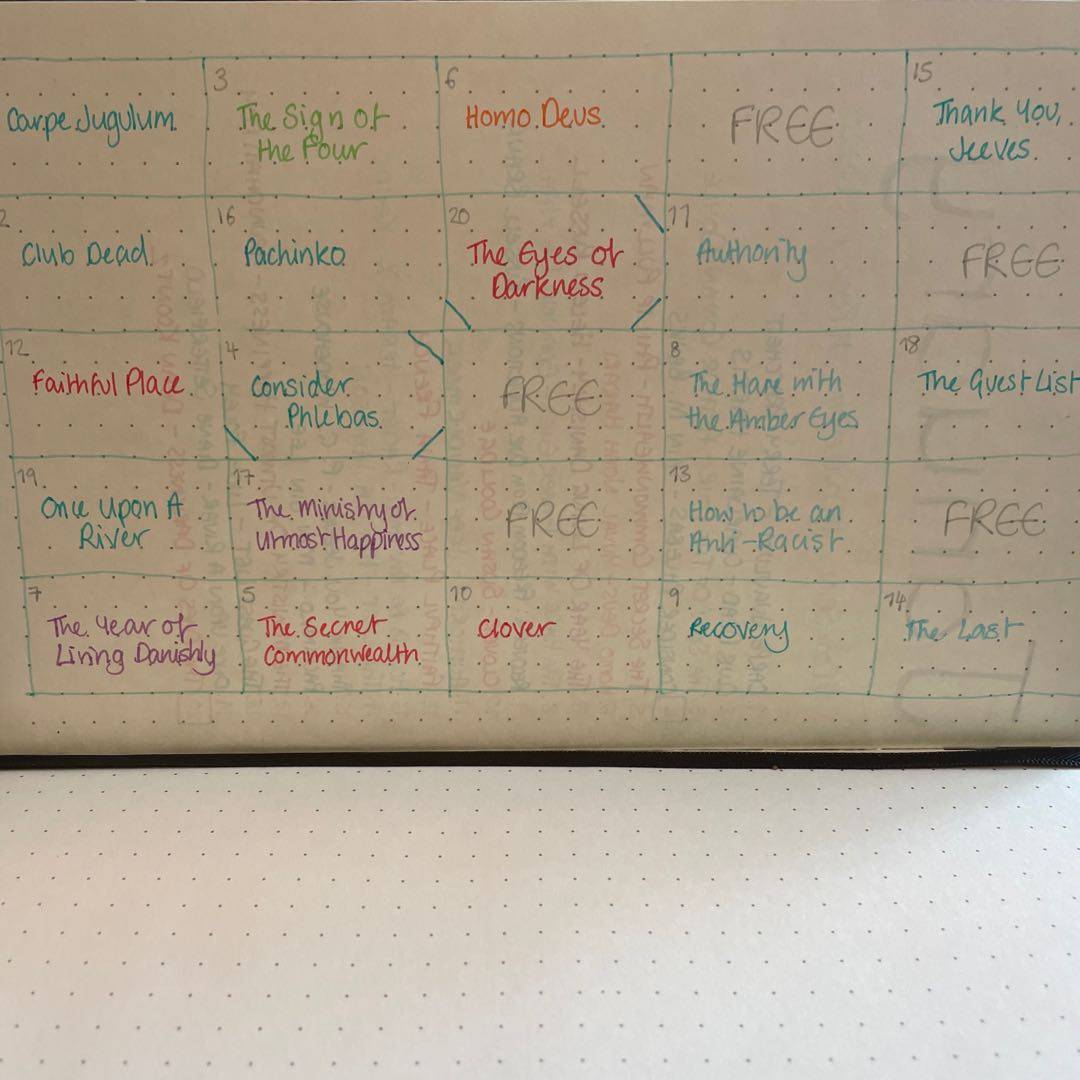 Carpe Jugulum
3
The Sign of
the Four
6
Homo Deus
FREE
15
Thank You,
Jeeves
2
Club Dead
16
Pachinko
20
The Eyes of
Darkness
11
Authority
FREE
12
Faithful Place
4
Consider
Phlebas
FREE
8
The Hare with
the Amber Eyes
18
The Guest List
19
Once Upon A
River
17
The Ministry of
Utmost Happiness
FREE
13
How to be an
Anti-Racist
FREE
7
The Year of
Living Danishly
5
The Secret
Commonwealth
10
Clover
9
Recovery
14
The Last